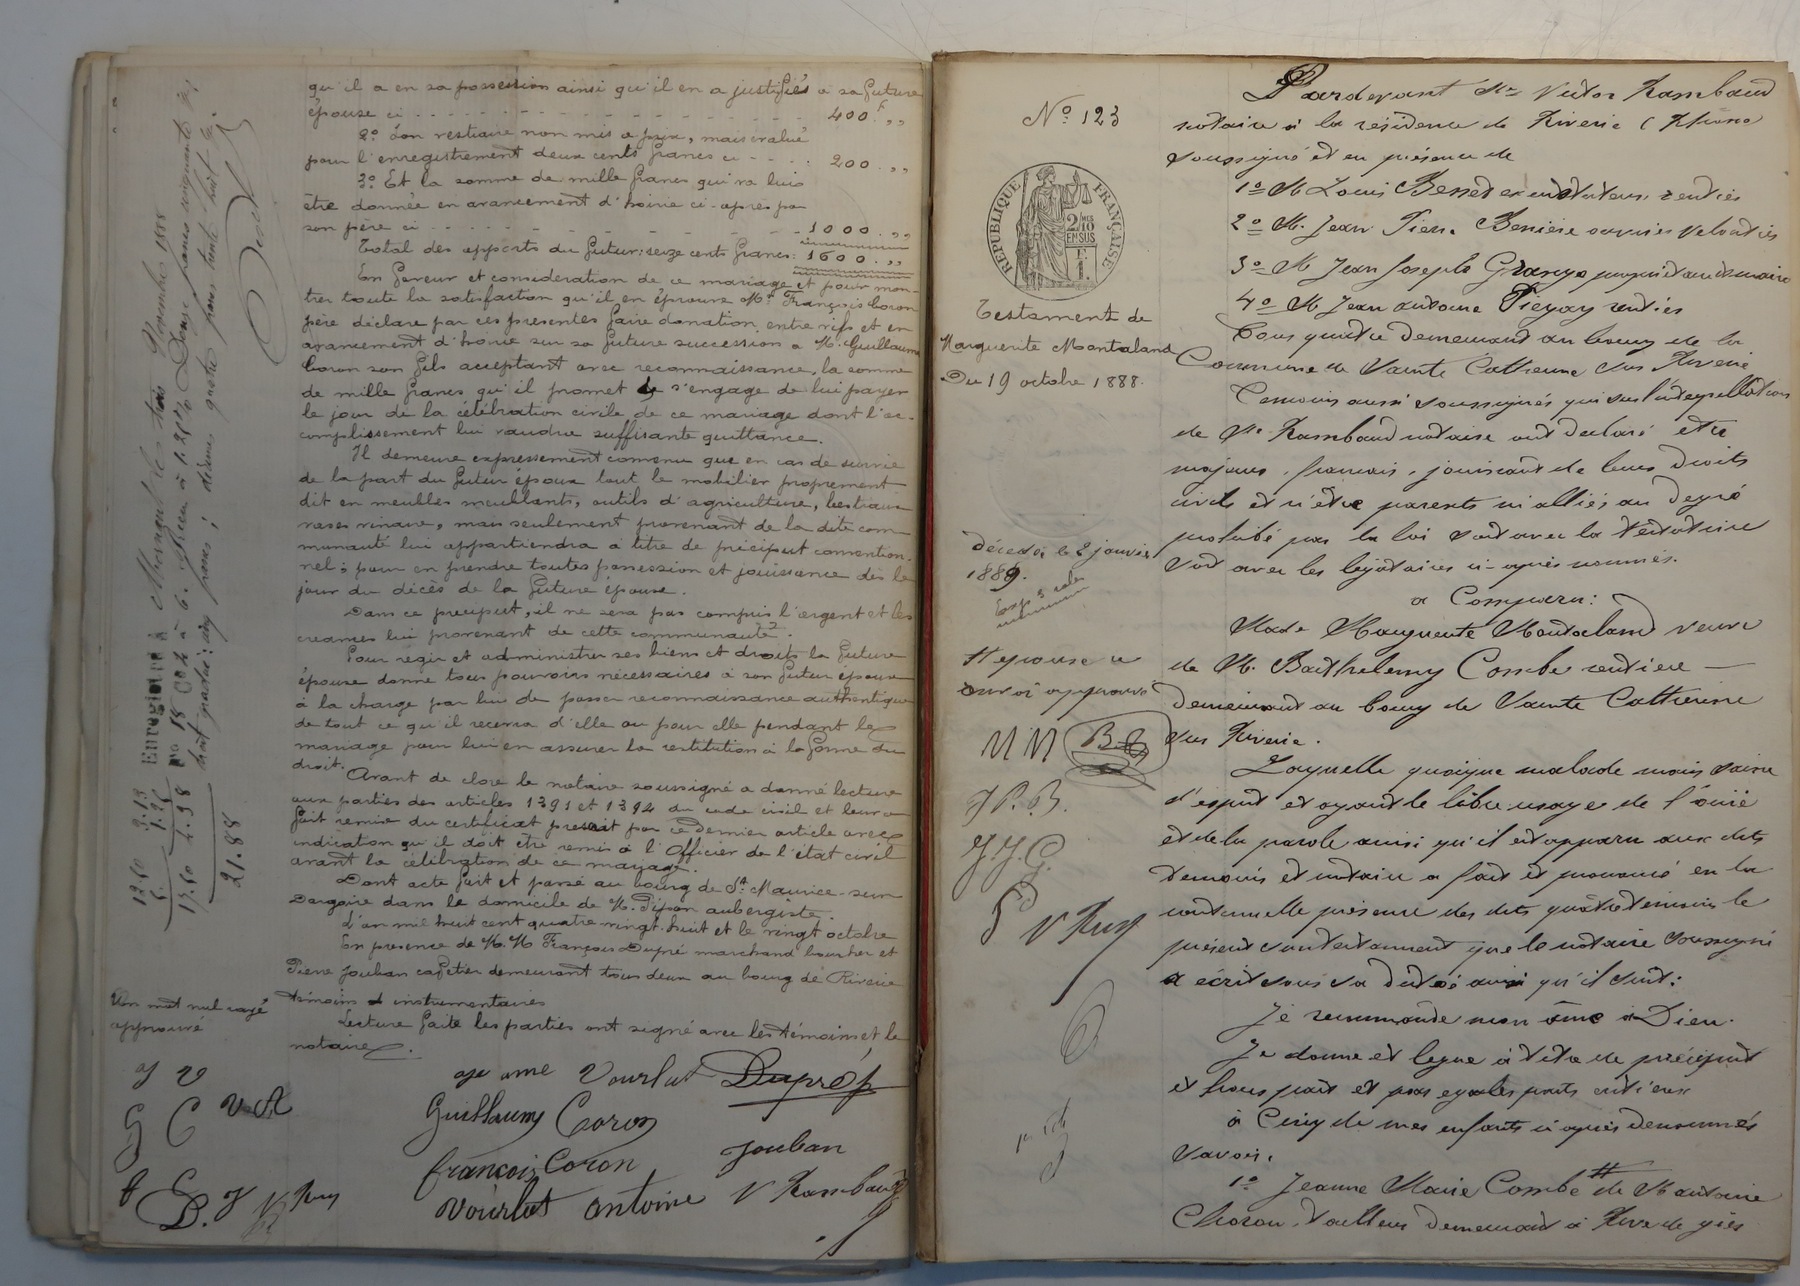 qu'il a en sa possession ainsi qu'il en a justifiés à sa future
épouse ci - - - - - 400.f ,,
2º Son vestiaire non mis à prix, mais évalué
pour l'enregistrement deux cents francs ci - - - - 200 . ,,
3º Et la somme de mille francs qui va lui
être donnée en avancement d'hoirie ci-après par
son père ci - - - - - 1000 . ,,
Total des apports du futur: seize cents francs: 1600 . ,,
En faveur et considération de ce mariage et pour mon-
trer toute la satisfaction qu'il en éprouve Mr François Coron
père déclare par ces présentes faire donation entre vifs et en
avancement d'hoirie sur sa future succession à M. Guillaume
Coron son fils acceptant avec reconnaissance, la somme
de mille francs qu'il promet s'engage de lui payer
le jour de la célébration civile de ce mariage dont l'ac-
complissement lui vaudra suffisante quittance.
Il demeure expressément convenu que en cas de survie
de la part du futur époux tout le mobilier proprement
dit en meubles meublants, outils d'agriculture, bestiaux
vases vinaire, mais seulement provenant de la dite com
munauté lui appartiendra à titre de préciput convention-
nel; pour en prendre toutes possession et jouissance dès le
jour du décès de la future épouse.
Dans ce preciput, il ne sera pas compris l'argent et les
creances lui provenant de cette communauté.
Pour régir et administrer ses biens et droits la future
épouse donne tous pouvoirs nécessaires à son futur époux
à la charge par lui de passer reconnaissance authentique
de tout ce qu'il recevra d'elle ou pour elle pendant le
mariage pour lui en assurer la restitution à la forme du
droit.
Avant de clore le notaire soussigné a donné lecture
aux parties des articles 1391 et 1394 du code civil et leur a
fait remise du certificat prescrit par ce dernier article avec
indication qu'il doit être remis à l'Officier de l'état civil
avant la célébration de ce mariage.
Dont acte fait et passé au bourg de St Maurice-sur
Dargoire dans le domicile de M. Pijon aubergiste.
L'an mil huit cent quatre vingt huit et le vingt octobre
En presence de M. M François Dupré marchand boucher et
Pierre Jouban cafetier demeurant tous deux au bourg de Riverie
témoins instrumentaires
Lecture faite les parties ont signé avec les témoins et le
notaire.
Vourlat Dupré
Guillaume Coron
françois Coron Jouban
Vourlat antoine V Rambaud
Un mot nul rayé
approuvé
V A
Enregistré à Mornant le trois Novembre 1888
Fo 18 Co 2 à 6.
21.88
Nº 123
RÉPUBLIQUE FRANÇAISE
2/10
EN SUS
1 F.
Testament de
Marguerite Montaland
Du 19 octobre 1888.
décédée le 2 janvier
1889.
approuvé
M M B
J P. B.
J J. G.
Pardevant Me Victor Rambaud
notaire à la résidence de Riverie (Rhône
soussigné et en présence de
1º M Louis Besset ex instituteur rentier
2º M. Jean Pierre Benière ouvrier veloutier
3º M Jean Joseph Grange propriétaire et maire
4º M Jean antoine Pieyay rentier
Tous quatre demeurant au bourg de la
Commune de Sainte Catherine sur Riverie
Temoins aussi soussignés qui sur l'interpellation
de Me Rambaud notaire ont déclaré être
majeurs, français, jouissant de leurs droits
civils et n'être parents ni alliés au degré
prohibé par la loi soit avec la testatrice
soit avec les légataires ci-après nommés.
a Comparu:
Made Marguerite Montaland veuve
de M. Barthelemy Combe rentiere —
demeurant au bourg de Sainte Catherine
sur Riverie.
Laquelle quoique malade mais saine
d'esprit et ayant le libre usage de l'ouïe
et de la parole ainsi qu'il est apparu aux dits
temoins et notaire a fait et prononcé en la
continuelle présence des dits quatre temoins le
présent testament que le notaire soussigné
a écrit sous sa dictée ainsi qu'il suit:
Je recommande mon âme à Dieu.
Je donne et legue à titre de préciput
et hors part et par egales parts entr'eux
à Cinq de mes enfants ci après denommés
savoir.
1º Jeanne Marie Combe # de M antoine
Choron, tailleur demeurant à Rive de gier